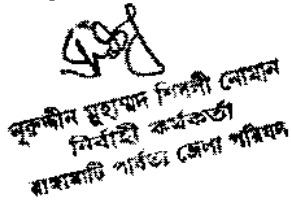 নূরুদ্দীন মুহাম্মদ শিবলী নোমান
নির্বাহী কর্মকর্তা
রাঙ্গামাটি পার্বত্য জেলা পরিষদ